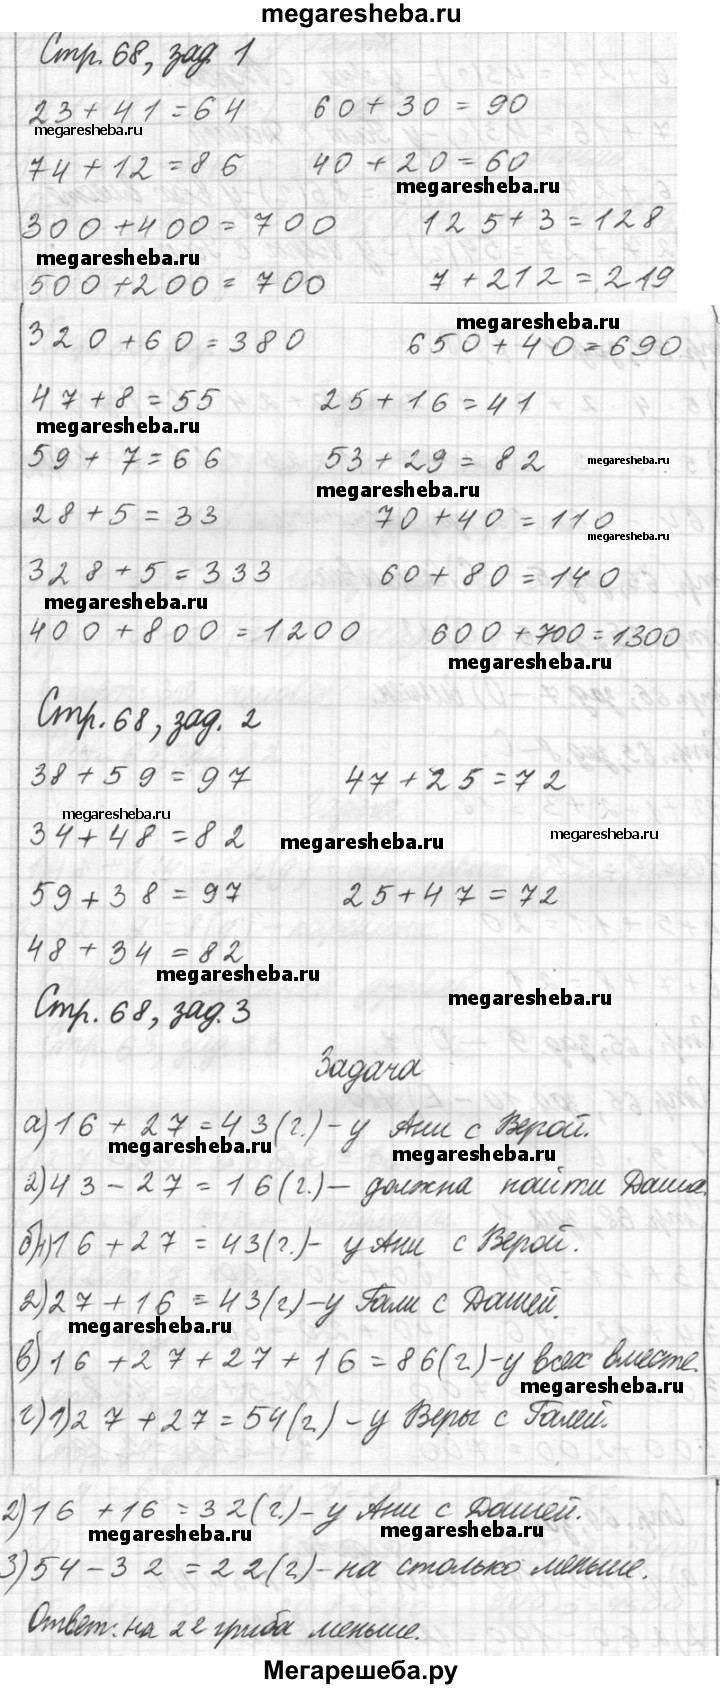 megaresheba.ru
Стр. 68, зад. 1
23+41=64 60+30=90
megaresheba.ru
74+12=86 40+20=60
megaresheba.ru
300+400=700 125+3=128
megaresheba.ru
500+200=700 7+212=219
megaresheba.ru
320+60=380 650+40=690
47+8=55 25+16=41
megaresheba.ru
59+7=66 53+29=82 megaresheba.ru
megaresheba.ru
28+5=33 70+40=110
megaresheba.ru
328+5=333 60+80=140
megaresheba.ru
400+800=1200 600+700=1300
megaresheba.ru
Стр. 68, зад. 2
38+59=97 47+25=72
megaresheba.ru
34+48=82 megaresheba.ru megaresheba.ru
59+38=97 25+47=72
48+34=82
megaresheba.ru
Стр. 68, зад. 3 megaresheba.ru
Задача
а) 16+27=43(г.)-у Ани с Верой.
megaresheba.ru megaresheba.ru
2) 43-27=16(г.)- должна найти Даша.
б) 1) 16+27=43(г.)- у Ани с Верой.
2) 27+16=43(г.)-у Гали с Дашей.
megaresheba.ru
в) 16+27+27+16=86(г.)-у всех вместе.
megaresheba.ru
г) 1) 27+27=54(г.)-у Веры с Галей.
2) 16+16=32(г.)-у Ани с Дашей.
megaresheba.ru megaresheba.ru
3) 54-32=22(г.)-на столько меньше.
Ответ: на 22 гриба меньше.
Мегарешеба.ру